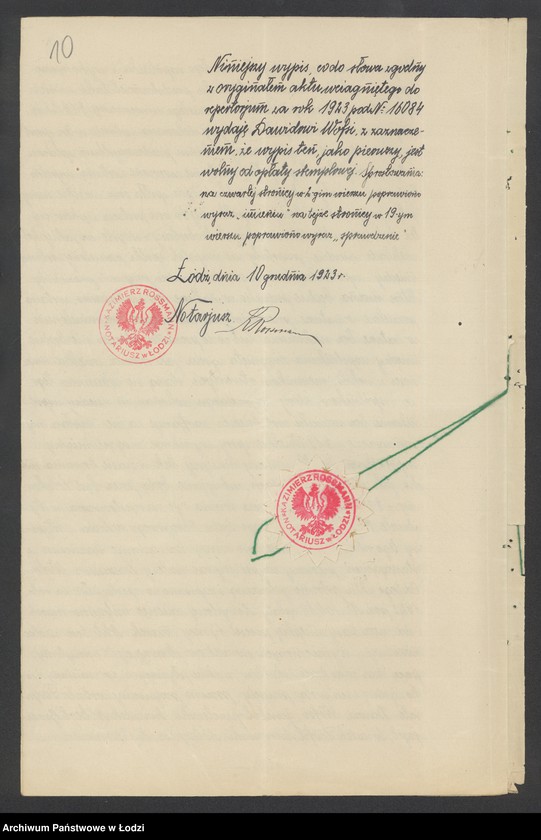 10
Niniejszy wypis, co do słowa zgodny
z oryginałem aktu wciągniętego do
repertorjum za rok 1923 pod № 16084
wydaję Dawidowi Wolfi, z zaznacze-
niem, że wypis ten, jako pierwszy, jest
wolny od opłaty stemplowej. Sprostowania:
na czwartej stronicy w 2-gim wierszu poprawiono
wyraz „imieniu” na tejże stronicy w 19-ym
wierszu poprawiono wyraz „sprawdzenie”
Łódź, dnia 10 grudnia 1923 r.
Notarjusz
KAZIMIERZ ROSSMANN
NOTARIUSZ w ŁODZI
KAZIMIERZ ROSSMANN
NOTARIUSZ w ŁODZI
Archiwum Państwowe w Łodzi